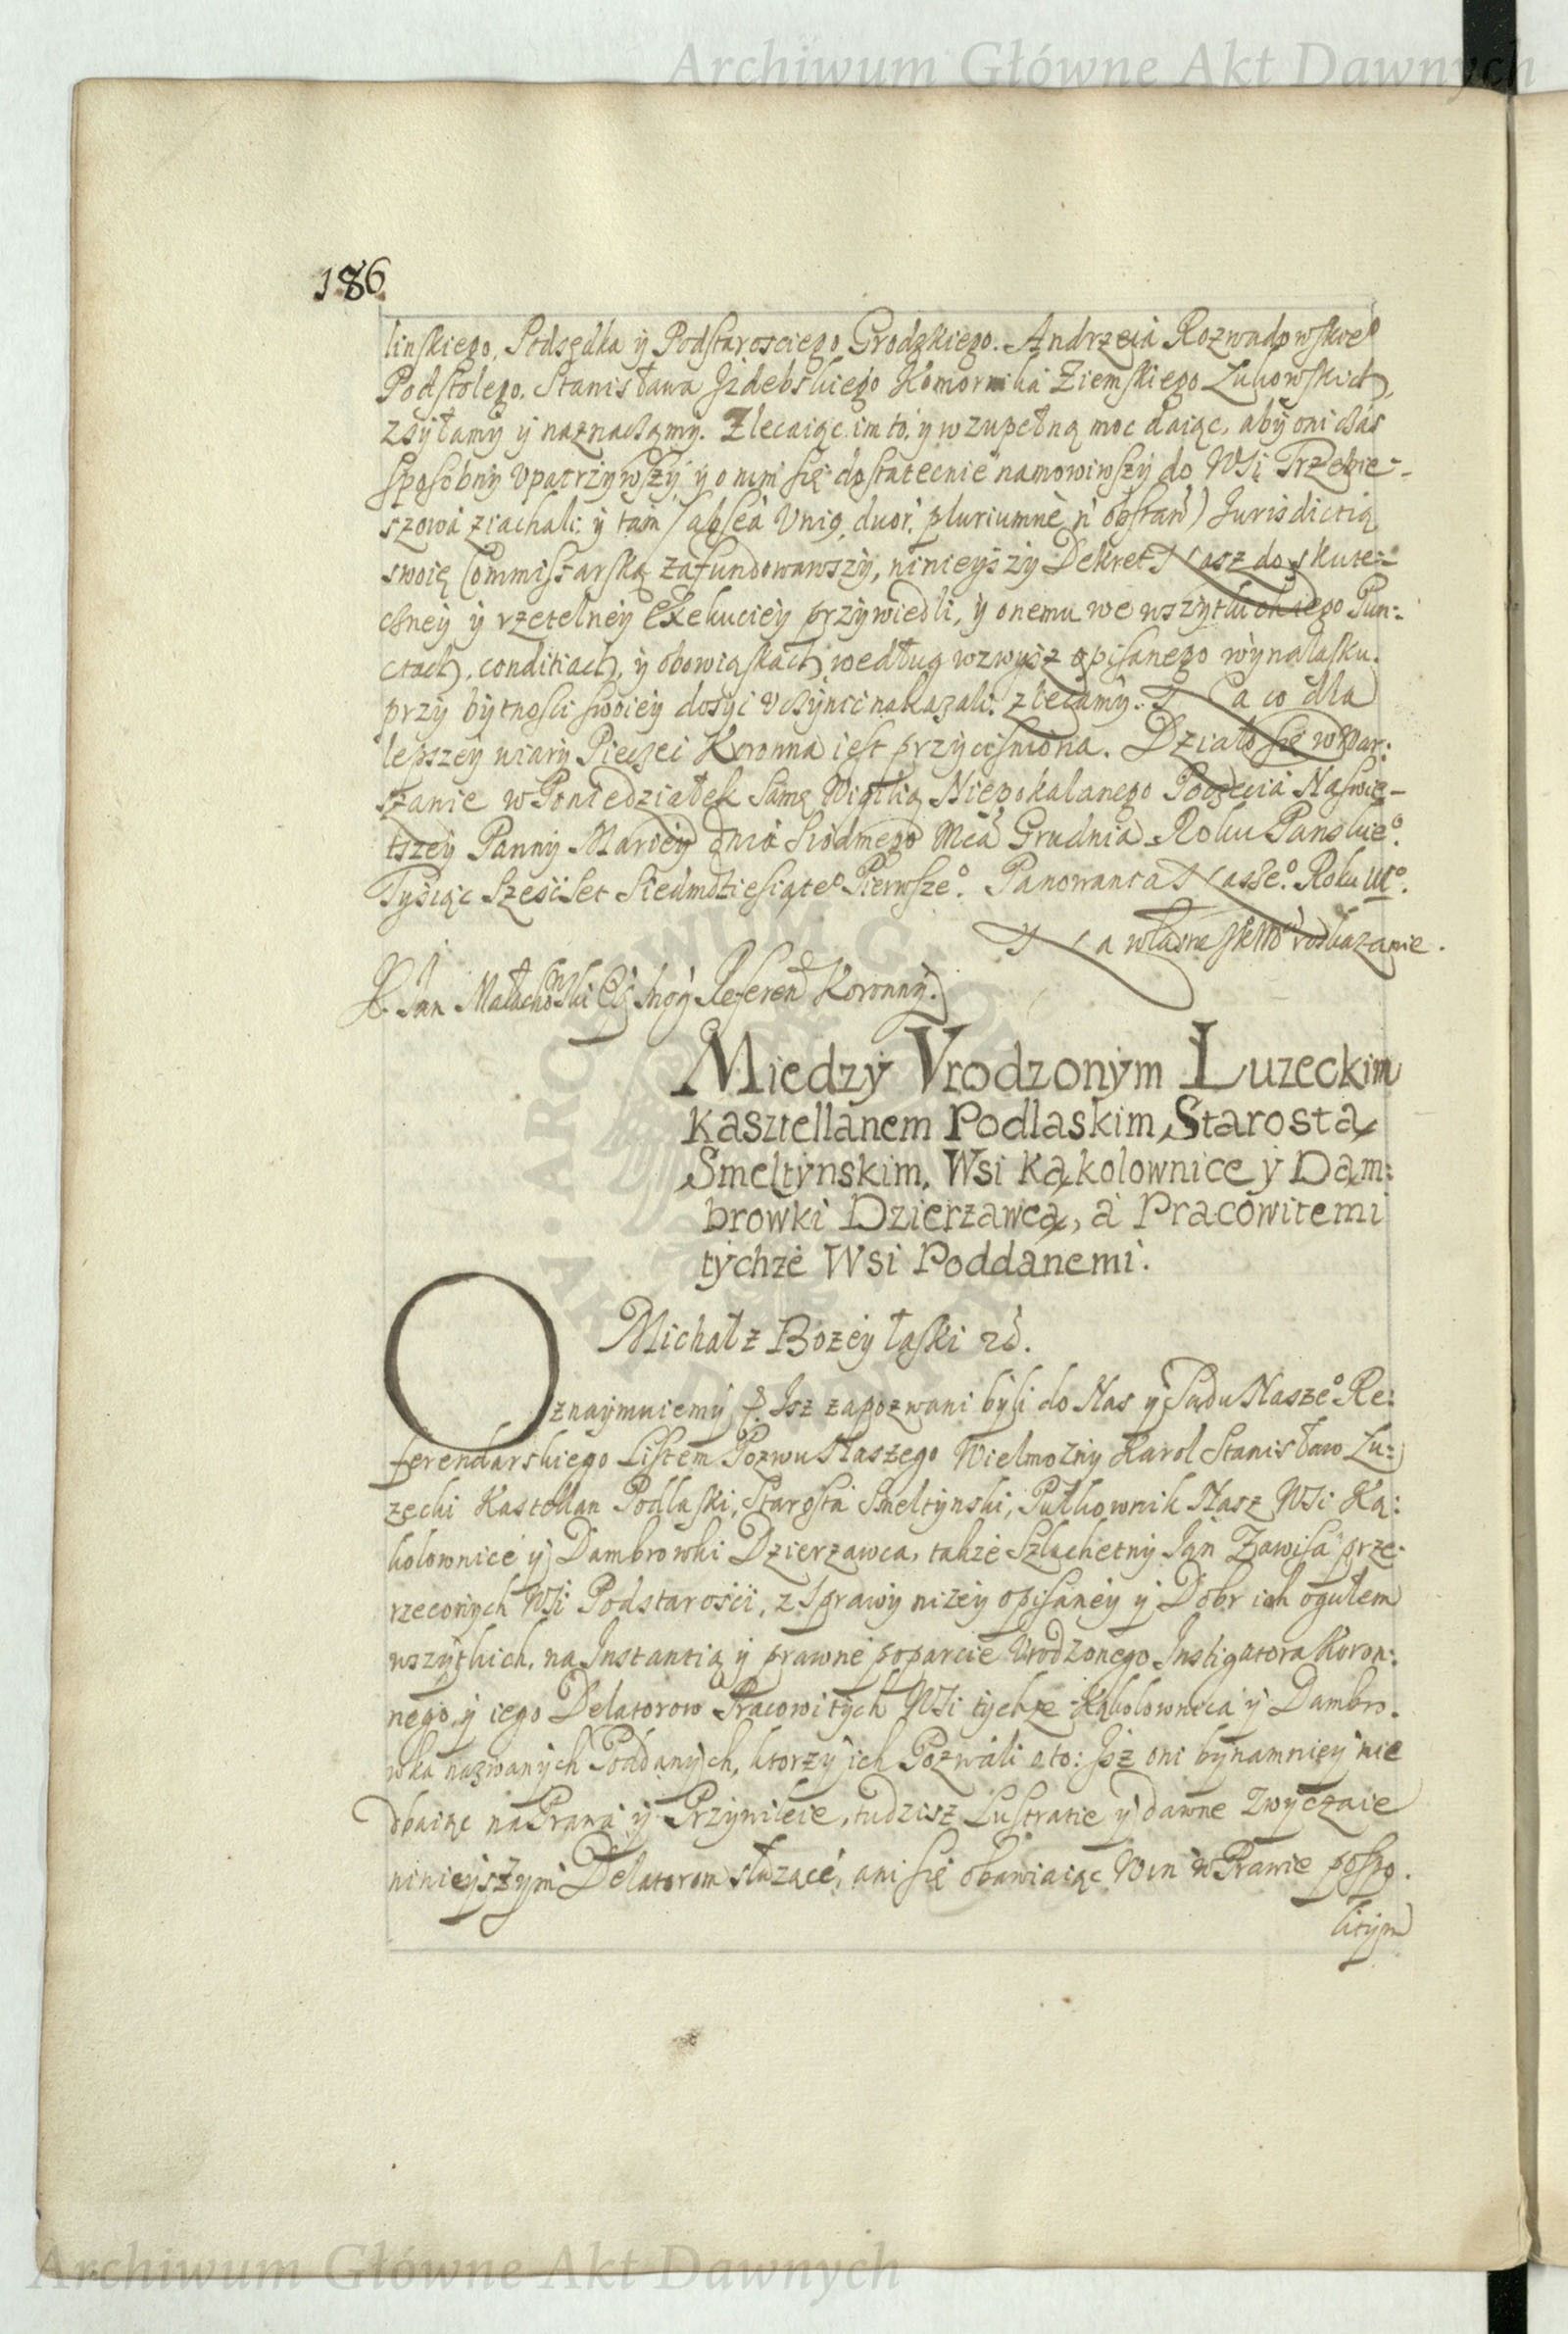 Archiwum Główne Akt Dawnych
186
linskiego, Podsędka ÿ Podstarosciego Grodzkiego. Andrzeia Rozwadowskieo
Podstolego. Stanisława Jzdebskiego Komornika Ziemskiego Lukowskich,
zsyłamÿ ÿ naznaczamÿ. Zlecaiąc im to, ÿ w zupełną moc daiąc, abÿ oni czas
sposobnÿ vpatrzÿwszÿ ÿ o nim się dostatecnie namowiwszÿ do Wsi Trzebie-
szowa ziachali: ÿ tam (absencia Vnig, duor, pluriumne n obstan) Jurisdictią
swoię Commissarską zafundowawszÿ, ninieÿszÿ Dekret Nasz do skute-
czneÿ ÿ rzetelneÿ Exekucieÿ przÿwiedli, ÿ onemu we wszÿtkich iego Pun:
ctach, conditiach, ÿ obowiąskach według wzwÿsz opisanego wÿnalasku.
przÿ bÿtnosci swoieÿ dosÿc vczÿnic nakazali, zlecamÿ. Na co dla
lepszeÿ wiarÿ Pieczęc Koronna iest przÿcisniona. Działo się w War:
szawie w Poniedziałek Samę Wigilią Niepokalanego Poczęcia Naswię-
tszeÿ Pannÿ Marieÿ dnia Siodmego Mca Grudnia Roku Panskieo.
Tysiąc Szescset Siedmdziesiąteo Pierwszeo. Panowania Naszeo. Roku IIIo.
Na własne JKMci roskazanie.
X. Jan Małachowski Referend Koronnÿ.
Miedzÿ Vrodzonÿm Luzeckim
Kasztellanem Podlaskim, Starostą
Smeltÿnskim, Wsi Kąkolownice ÿ Dąm:
browki Dzierzawcą, a Pracowitemi
tÿchże Wsi Poddanemi.
Michał z Bozeÿ łaski rc.
Oznaÿmuiemÿ p. Jsz zapozwani bÿli do Nas ÿ Sądu Naszeo Re:
ferendarskiego Listem Pozwu Naszego Wielmoznÿ Karol Stanisław Lu:
zecki Kasztellan Podlaski, Starosta Smeltÿnski, Pułkownik Nasz Wsi Ką:
kolownice ÿ Dambrowki Dzierzawca, takze Szlachetnÿ Jan Zawisa prze-
rzeconÿch Wsi Podstarosci, z sprawÿ nizeÿ opisaneÿ ÿ Dobr ich ogułem
wszÿtkich, na Jnstantią ÿ prawne poparcie Vrodzonego Jnstigatora Koron:
nego, ÿ iego Delatorow Pracowitÿch Wsi tÿchze Kąkolownica ÿ Dambro-
wka nazwanÿch Poddanÿch, ktorzÿ ich Pozwali o to: Jsz oni bÿnamnieÿ nie
dbaiąc na Prawa ÿ Przÿwileie, tudzisz Lustratie ÿ dawne Zwÿczaie
ninieÿszÿm Delatorom słuzące, ani się obawiaiąc Win w Prawie pospo-
litÿm
Archiwum Główne Akt Dawnych